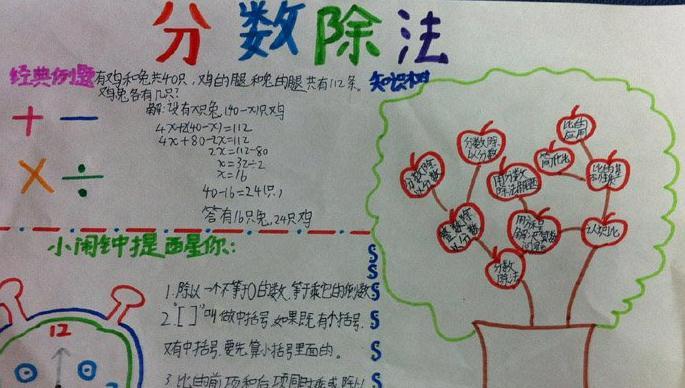 分数除法
经典例题 有鸡和兔共40只，鸡的腿和兔的腿共有112条。
鸡兔各有几只？
解：设有X只兔，(40-x)只鸡
4x+2(40-x)=112
4x+80-2x=112
2x=112-80
x=32÷2
x=16
40-16=24只
答有16只兔，24只鸡
+ −
× ÷
小闹钟提醒你：
12
1.除以一个不等于0的数，等于乘它的倒数
2."[ ]"叫做中括号，如果既有小括号，
又有中括号，要先算小括号里面的。
3.比的前项和后项同时乘或除以
知识树
比的
应用
分数除
以分数
简化比
分数除
以分数
用分数
除法解题
比的基
本性质
整数除
以分数
认识比
分数
除法